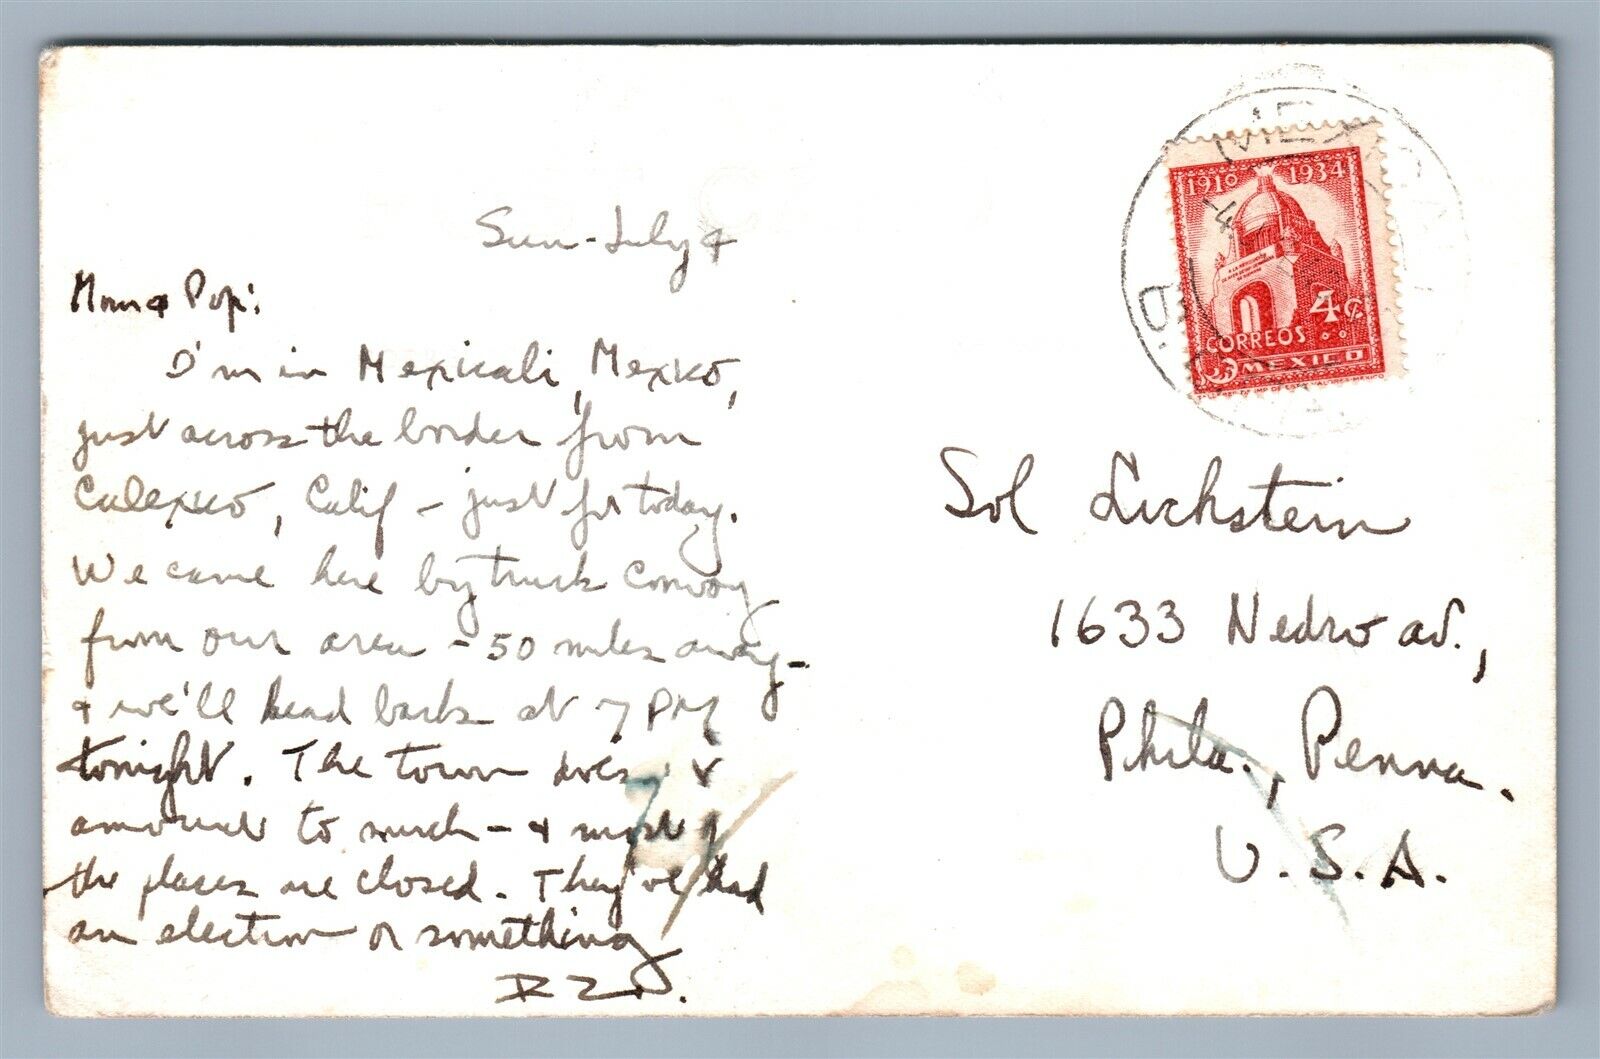 Sun - July 4
Mom & Pop:
I'm in Mexicali, Mexico,
just across the border from
Calexico, Calif - just for today.
We came here by truck convoy
from our area - 50 miles away -
& we'll head back at 7 PM
tonight. The town doesn't
amount to much - & most of
the places are closed. They've had
an election or something
1910 1934
4¢
CORREOS
MEXICO
Sol Lichstein
1633 Nedro av.,
Phila., Penna.
U.S.A.